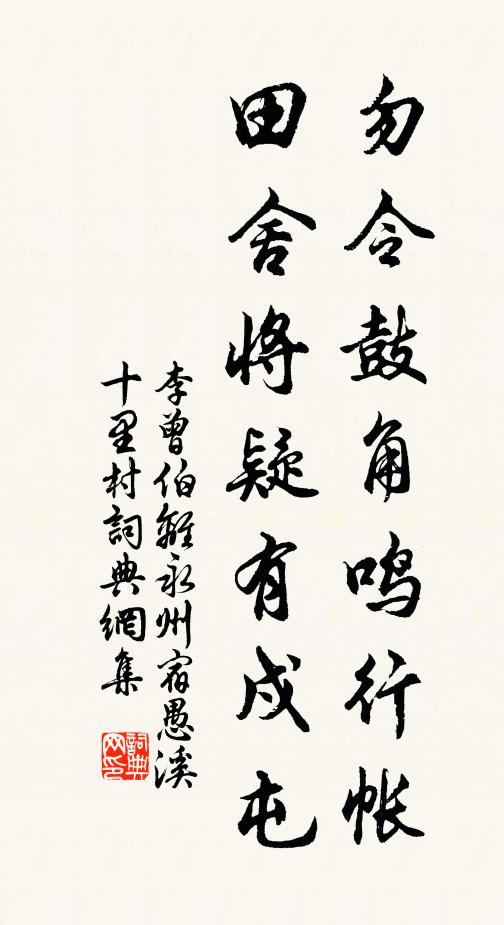 勿令鼓角鸣行帐
田舍將疑有戍屯
李曾伯離永州宿愚溪
十里村詞典網集
詞典网印